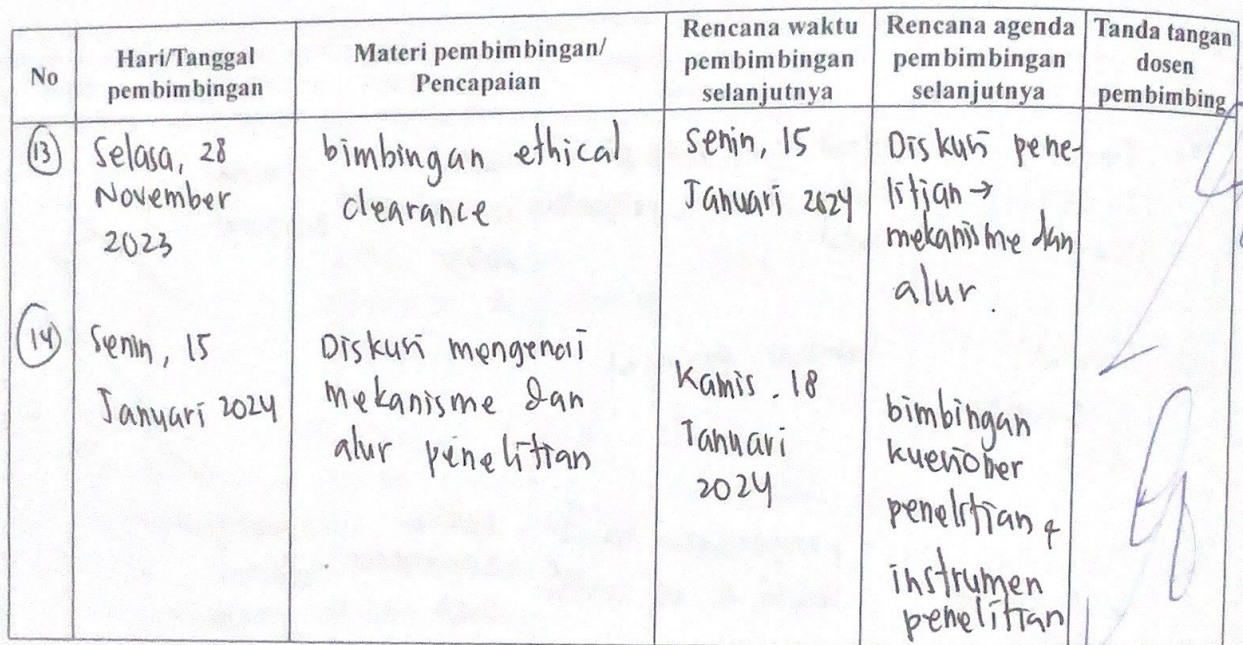 No
Hari/Tanggal
pembimbingan
Materi pembimbingan/
Pencapaian
Rencana waktu
pembimbingan
selanjutnya
Rencana agenda
pembimbingan
selanjutnya
Tanda tangan
dosen
pembimbing
13
Selasa, 28
November
2023
bimbingan ethical
clearance
Senin, 15
Januari 2024
Diskusi pene-
litian →
mekanisme dan
alur.
14
Senin, 15
Januari 2024
Diskusi mengenai
mekanisme dan
alur penelitian
Kamis. 18
Januari
2024
bimbingan
penelitian &
instrumen
penelitian